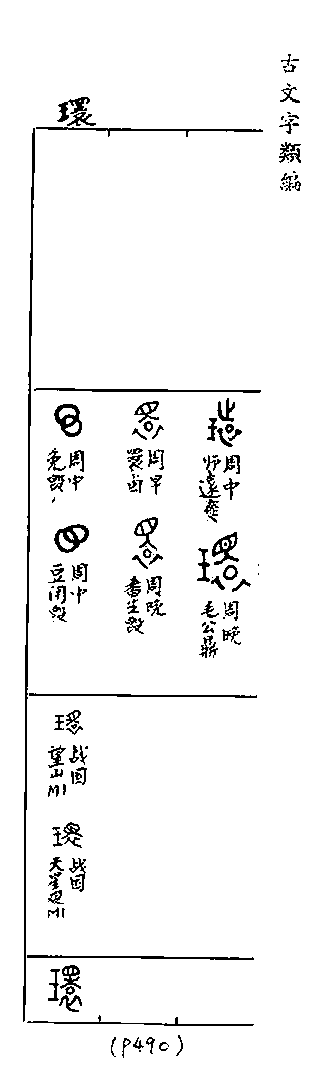 古文字類編
環
周中
师遽彝
周早
睘卣
周中
免毁
周晚
毛公鼎
周晚
番生毁
周中
豆闭毁
战国
望山M1
战国
天星观M1
環
(P490)